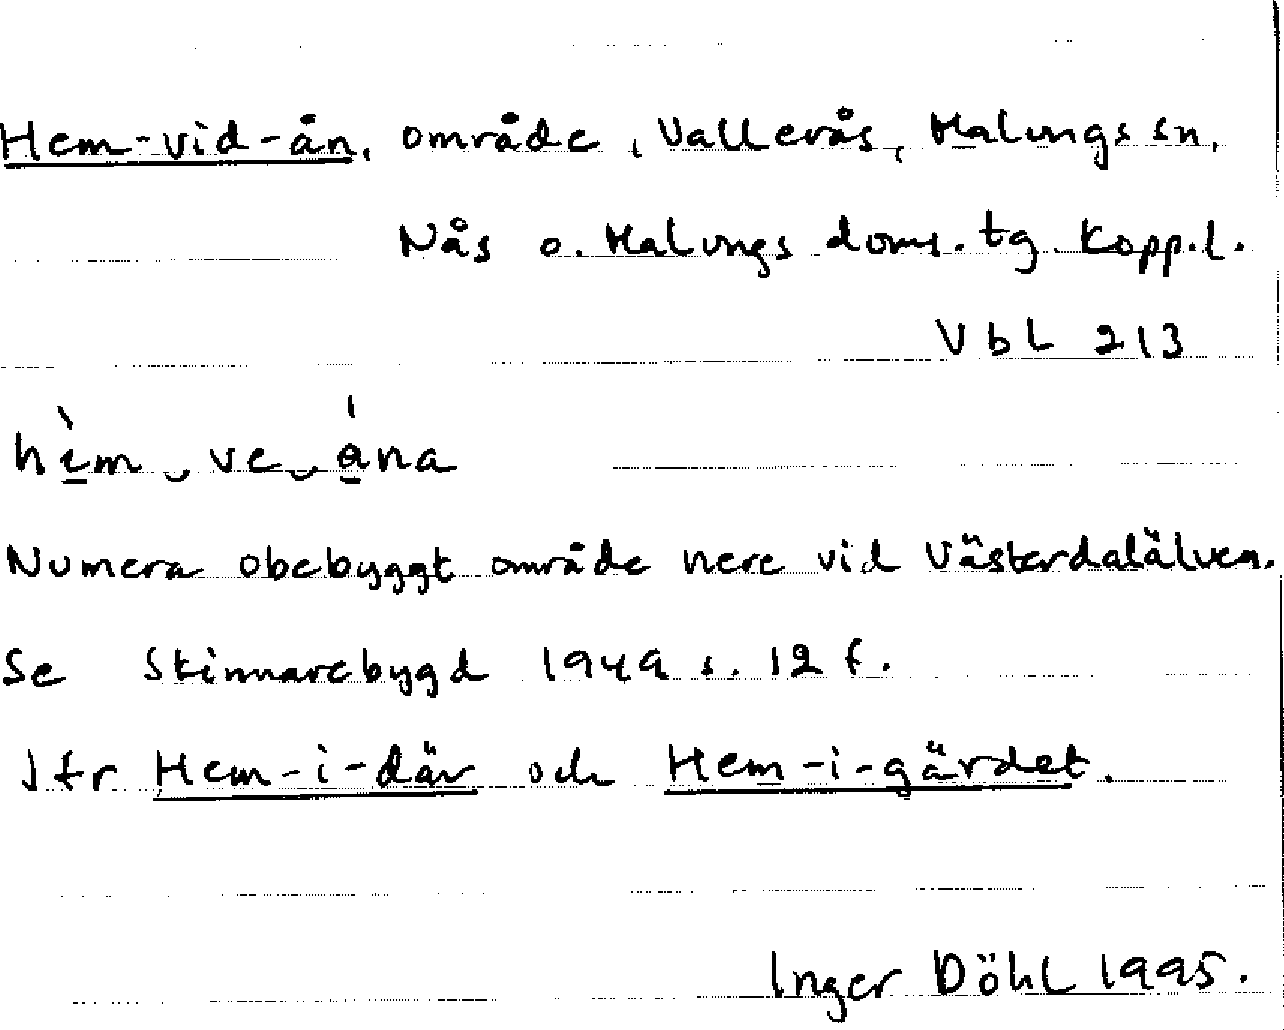 Hem-vid-ån, område, Vallerås, Malungs sn,
Nås o. Malungs doms. tg Kopp.l.
VbL 213
hèm‿ve‿ána
Numera obebyggt område nere vid Västerdalälven.
Se Skinnarebygd 1949 s. 12 f.
Jfr Hem-i-där och Hem-i-gärdet.
Inger Döhl 1995.